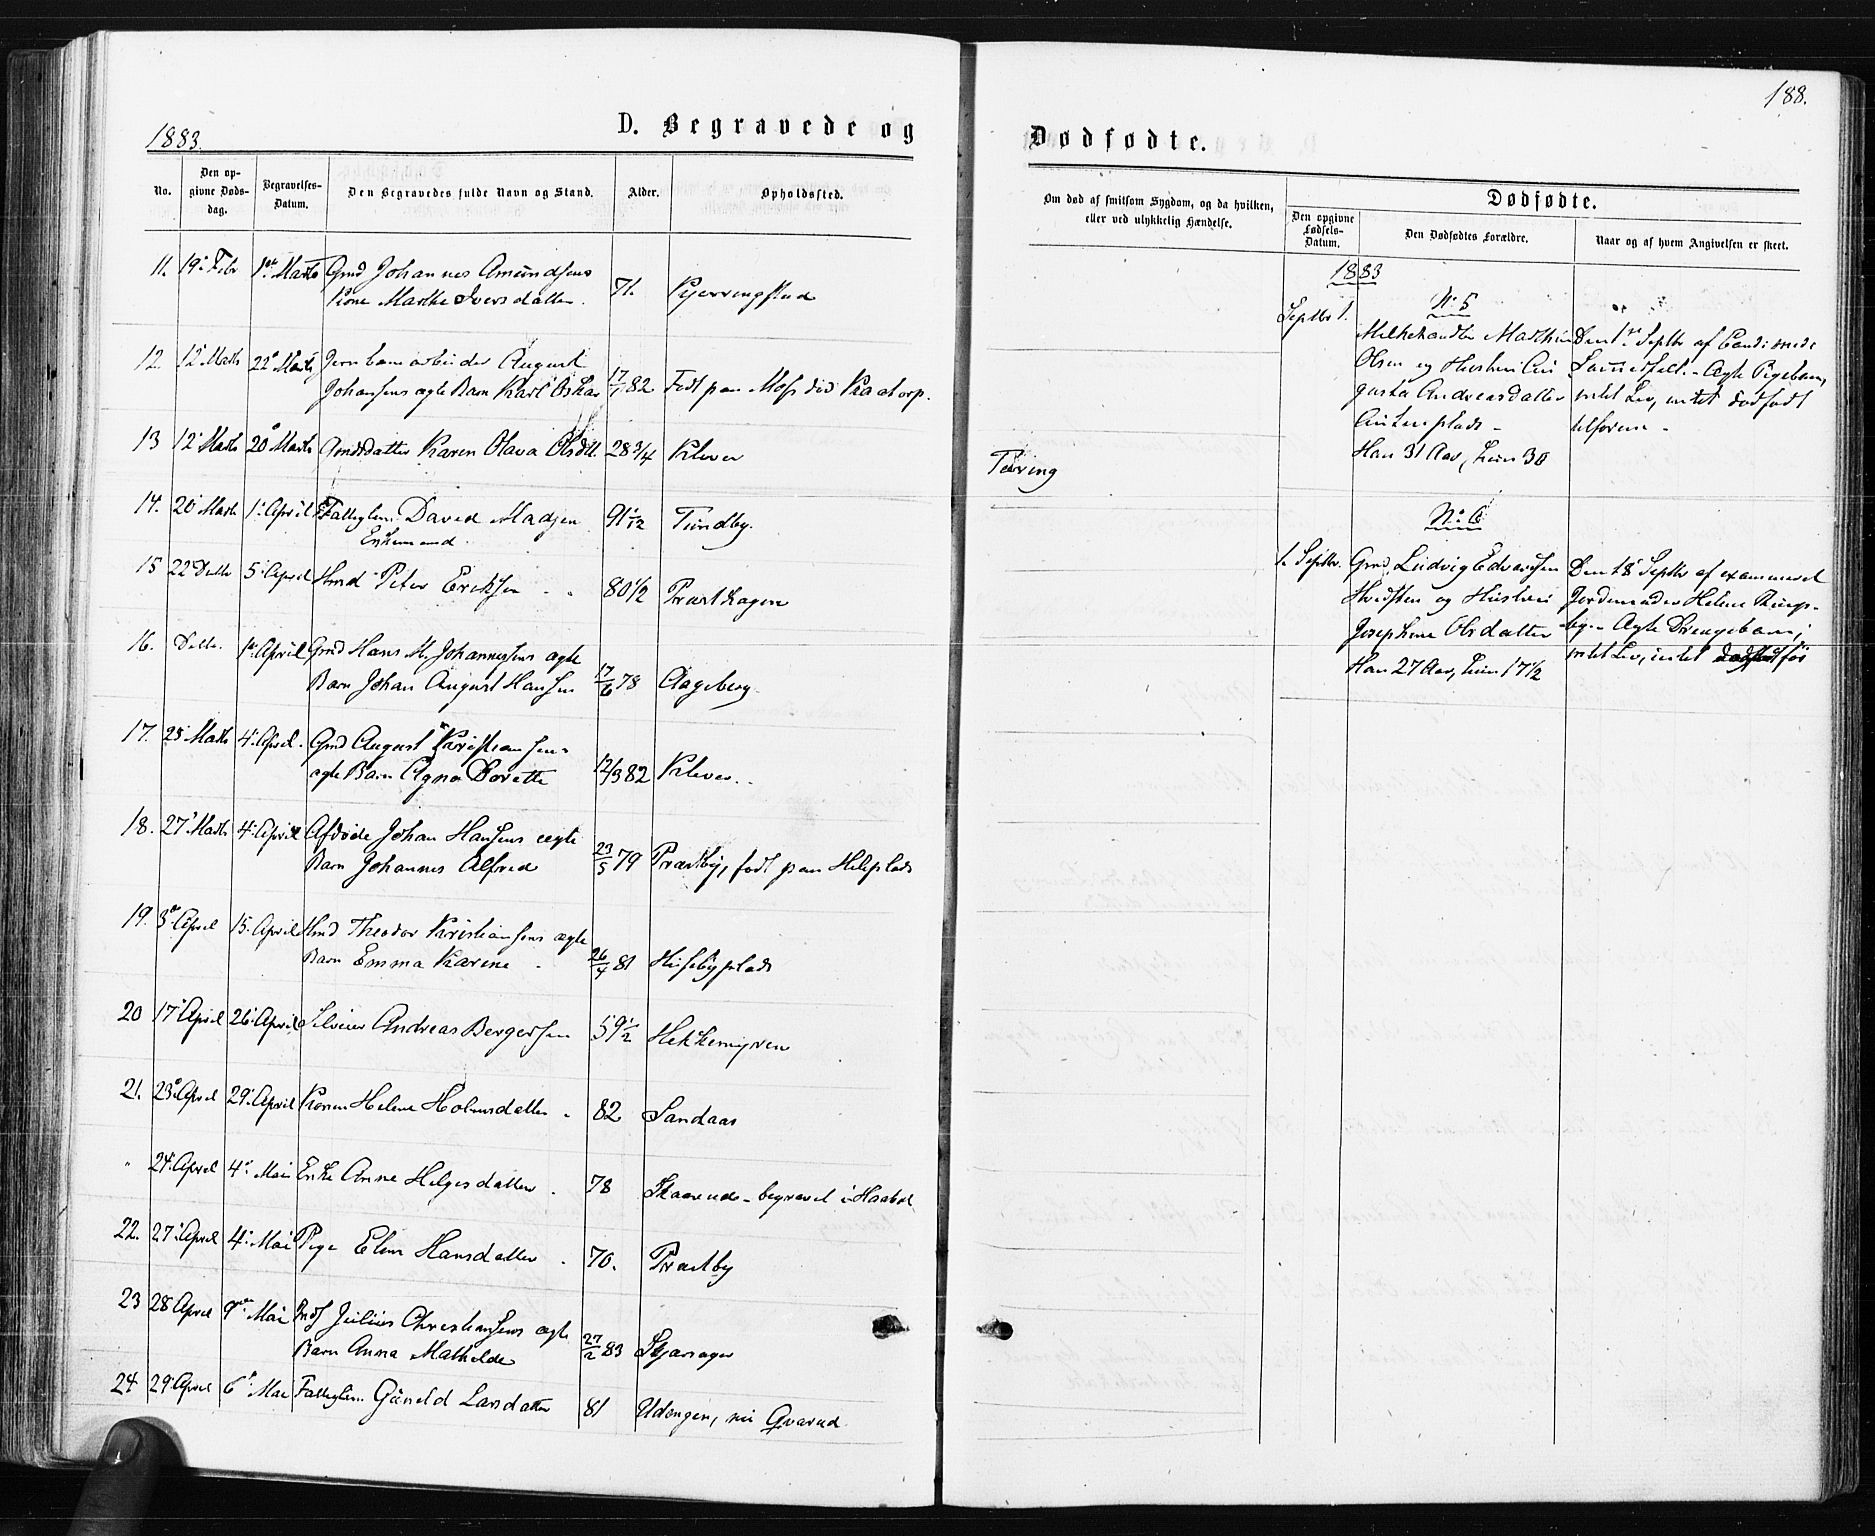 1883.
D. Begravede og
No.
Den op-
givne Døds-
dag.
Begravelses-
Datum.
Den Begravedes fulde Navn og Stand.
Alder.
Opholdssted.
11. 19. Febr 1ste Marts Gmd Johannes Amundsens
Kone Marthe Iversdatter. 71. Kjerringstad
12. 12 Marts 22 Marts Jernbanearbeider August
Johansens ægte Barn Karl Oskar 17/1 82 Født paa Moss død Kaatorp.
13 12 Marts 20 Marts Gmdsdatter Karen Olava Olsdtt. 28 3/4 Klever
14. 20 Marts 1. April Fattiglem David Madsen 91 1/12 Tundby.
Enkemand.
15 22 Detto 5. April Hmd Peter Eriksen 80 1/2 Præsthagen
16. Detto. 1ste April Gmd Hans M. Johannessens ægte
Barn Johan August Hansen 17/6 78 Aageberg
17. 25 Marts 4. April. Gmd August Kristiansens
ægte Barn Agna Dorette 12/3 82 Klever.
18. 27 Marts 4. April Afdøde Johan Hansens ægte
Barn Johannes Alfred 23/5 79 Præstby, født paa Heleplads
19. 3die April 15. April Hmd Theodor Kristiansens ægte
Barn Emma Karine 26/4 81 Husebyplads
20 17 April 26 April Andreas Bergersen 59 1/2 Hekkemyren
21. 23 April 29. April Karen Helene Holmsdatter 82 Sandaas
" 24. April 4. Mai Enke Anne Helgesdatter. 78 Skaarud - begravet i Haabøl
22. 27. April 4. Mai Pige Elen Hansdatter. 70. Præstby
23 28 April 9 Mai Inds Julius Christiansens ægte
Barn Anna Mathilde 27/2 83 Skjærager
24 29. April 6. Mai Fattiglem Gunild Larsdatter 81 Udengen, nu Qvarud
188.
Dødfødte.
Om død af smitsom Sygdom, og da hvilken,
eller ved ulykkelig Hændelse.
Dødfødte.
Den opgivne
Fødsels-
Datum.
Den Dødfødtes Forældre.
Naar og af hvem Angivelsen er skeet.
Tæring
1883
No 5
Septbr 1. Melkehandler Mathias Den 1ste Septbr af Cand. med.
Olsen og Hustru Au Ægte Pigebarn,
gusta Andreasdatter intet Liv, intet dødfødt
plads - tilforn -
Han 31 Aar, hun 30
No 6
1. Septbr. Gmd. Ludvig Edvardsen Den 18 Septbr af examineret
Hvidsten og Hustru Jordemoder Helene Tings-
Josephine Olsdatter by - Ægte Drengebarn;
Han 27 Aar, hun 17 1/2 intet Liv, intet før